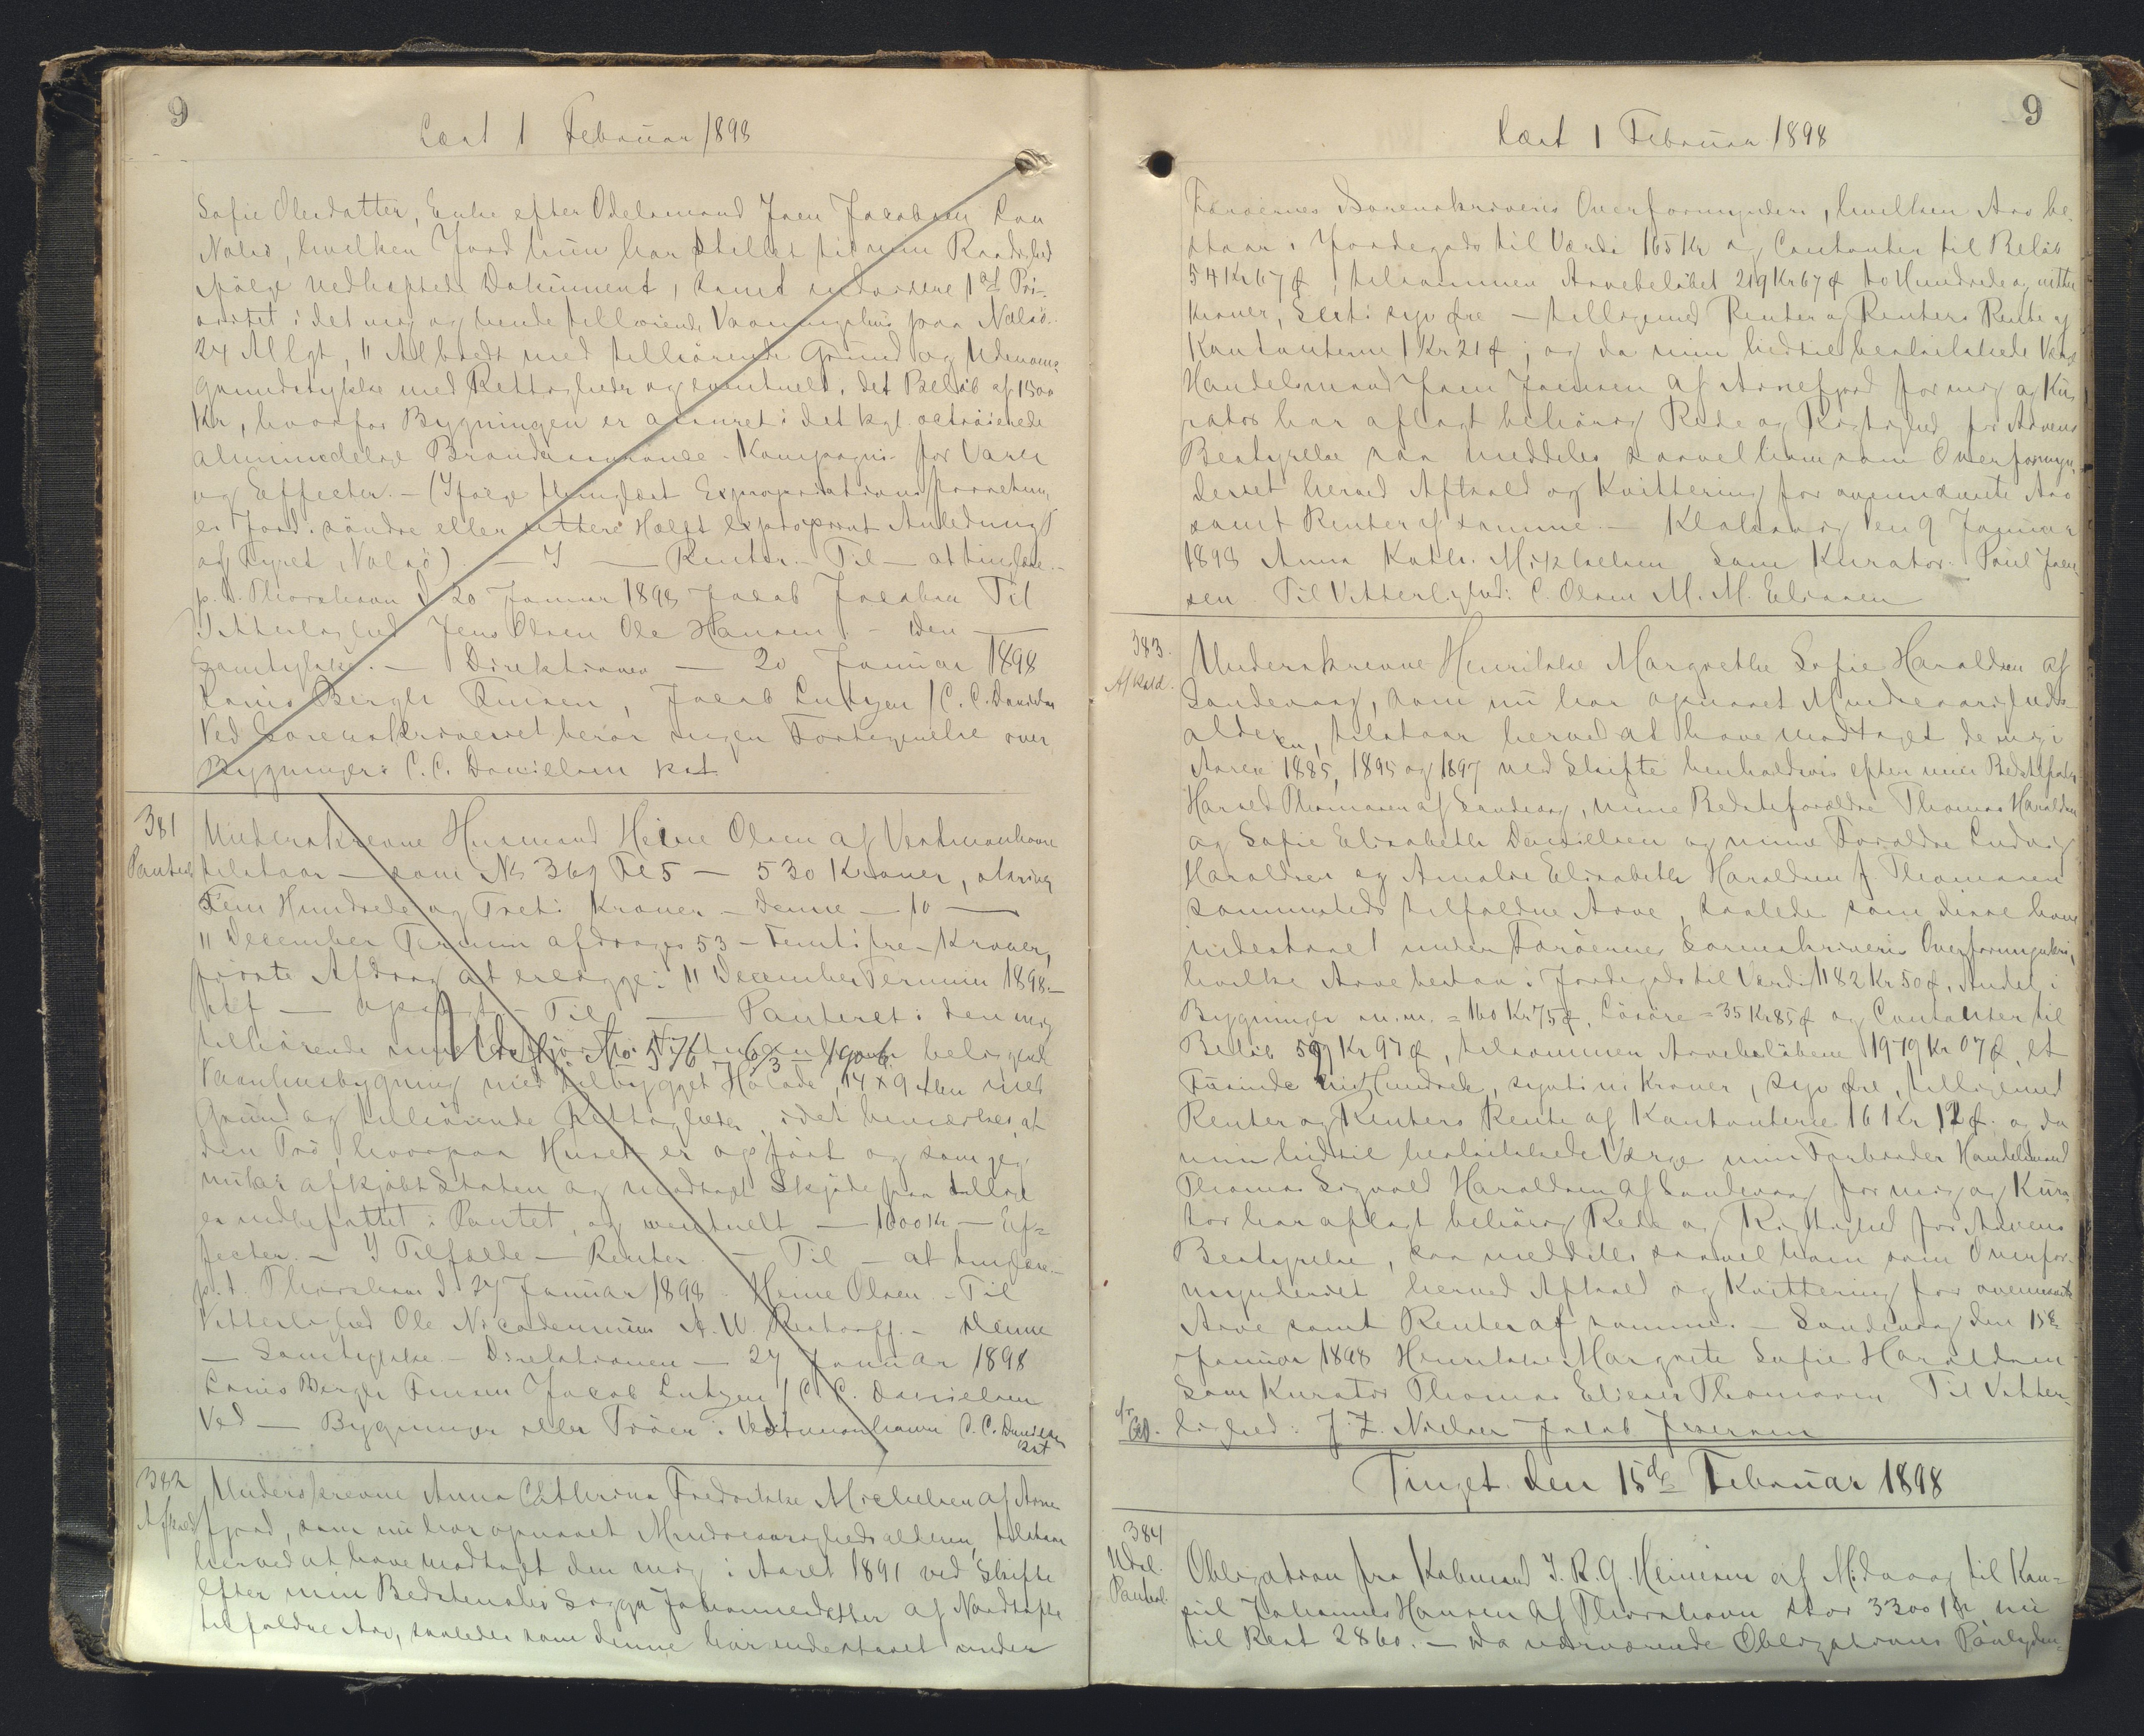 9
Læst 1 Februar 1898
Sofie Olesdatter, Enke efter Odelsmand Joen Jacobsen paa
Nolsö, hvilken Jord hun har stillet til min Raadighed
ifölge vedheftede Dokument, samt endvidere 1st Pri-
oritet i det mig og hende tilhörende Vaaningshus paa Nolsö
24 Al lgt, 11 Al bredt med tilhörende Grund og Udenoms
Grundstykke med Rettigheder og eventuelt, det Belöb af 1500
Kr, hvorfor Bygningen er assureret i det kgl. octroierede
almindelige Brandassurance-Kompagni for Varer
og Effecter. — (Ifölge tinglæst Expropriations forretning
er Jord i söndre eller yttere Halft exproprieret i Anledning
af Fyret Nolsö). — I — Renter. — Til — at tinglæse. —
p. t. Thorshavn d 20 Januar 1898 Jacob Jacobsen Til
Vitterlighed Jens Olsen Ole Hansen. — Den —
Samtykke. — Direktionen — 20 Januar 1898
Louis Bergh Finsen, Jacob Lutzen / C. C. Danielsen
Ved Sorenskriveriet beror ingen Fortegnelse over
Bygninger: C. C. Danielsen kst
381
Panteobl
Underskrevne Husmand Heine Olsen af Vestmanhavn
tilstaar — som No 369 Fol 5 — 530 Kroner, skriver
Fem Hundrede og Treti Kroner — denne — 10 —
11 December Termin afdrages 53 — Femti tre — Kroner,
förste Afdrag at erlægge i 11 December Termin 1898 —
hvf — opsagt — Til — Panteret i den mig
tilhörende i Vestmanhavn beliggende
Udslj. No 576 6/3 1906
Vaanhusbygning med tilbygget Hölade, 14 x 9 Alen med
Grund og tilhörende Rettigheder, idet bemærkes, at
den Trö, hvorpaa Huset er opfört og som jeg
nu har afkjöbt Staten og modtaget Skjöde paa tillige
er indbefattet i Pantet, og eventuelt — 1000 Kr — Ef-
fecter. — I Tilfælde — Renter. — Til — at tinglæse. —
p. t. Thorshavn d 27 Januar 1898. Heine Olsen. — Til
Vitterlighed Ole Nicodemussen A. W. Restorff. — Denne
— Samtykke — Direktionen — 27 Januar 1898
Louis Bergh Finsen Jacob Lutzen / C. C. Danielsen
Ved — Bygninger eller Tröer i Vestmanhavn C. C. Danielsen
kst
382
Afkald
Underskrevne Anna Cathrina Fredrikke Michelsen af Arne
fjord, som nu har opnaaet Myndighedsalderen, tilstaar
herved at have modtaget den mig i Aaret 1891 ved Skifte
efter min Bedstemoder Sogga Johannesdatter af Nordtofte
tilfaldne Arv, saaledes som denne har indestaaet under
9
Læst 1 Februar 1898
Færöernes Sorenskriveris Overformynderi, hvilken Arv be-
staar i Jordegods til Værdi 165 Kr og Contanter til Belöb
54 Kr 67 Ø, tilsammen Arvebelöbet 219 Kr 67 Ø to Hundrede og nitten
Kroner, Seksti syv Øre — tilligemed Renter og Renters Rente af
Kontanterne 1 Kr 21 Ø; og da min hidtil beskikkede Værge
Handelsmand Joen Joensen af Arnefjord for mig og Ku-
rator har aflagt behörig Rede og Rigtighed for Arvens
Bestyrelse saa meddeles saavel ham som Overformyn-
deriet herved Afkald og Kvittering for ovennævnte Arv
samt Renter af samme. — Klaksvig den 9 Januar
1898 Anna Kath. Michelsen Som Kurator. Poul Joen-
sen. Til Vitterlighed: C. Olsen M. M. Eliasen
383.
Afkald.
Underskrevne Henrikke Margrethe Sofie Haraldsen af
Sandevaag, som nu har opnaaet Myndigheds
alderen, tilstaar herved at have modtaget de mig i
Aaren 1885, 1895 og 1897 ved Skifte henholdsvis efter min Bedstefader
Harald Thomasen af Sandevaag, mine Bedsteforældre Thomas Haraldsen
og Sofie Elisabeth Danielsen og mine Forældre Ludvig
Haraldsen og Amalie Elisabeth Haraldsen f. Thomasen
sammesteds tilfaldne Arve, saaledes som disse have
indestaaet under Færöernes Sorenskriveris Overformynderi,
hvilke Arve bestaa i Jordegods til Værdi 1182 Kr 50 Ø, Andel i
Bygninger m. m. = 160 Kr 75 Ø, Lösöre = 35 Kr 85 Ø og Contanter til
Belöb 599 Kr 97 Ø, tilsammen Arvebelöbene 1979 Kr 07 Ø, et
Tusinde ni Hundrede, sytti ni Kroner, syv Øre, tilligemed
Renter og Renters Rente af Kontanterne 161 Kr 12 Ø. og da
min hidtil beskikkede Værge min Farbroder Handelsmand
Thomas Sigvald Haraldsen af Sandevaag for mig og Kura-
tor har aflagt behörig Rede og Rigtighed for Arvens
Bestyrelse, saa meddeles saavel ham som Overfor-
mynderiet herved Afkald og Kvittering for ovennævnte
Arve samt Renter af samme. — Sandevaag den 15de
Januar 1898 Henrikke Margrete Sofie Haraldsen
Som Kurator Thomas Eliesar Thomasen Til Vitter-
lighed: J. Z. Nielsen Jacob Joensen
Tinget den 15de Februar 1898
384
Udsl.
Panteobl.
Obligation fra Köbmand J. R. G. Heinesen af Midvaag til Kon-
sul Johannes Hansen af Thorshavn stor 3300 Kr, nu
til Rest 2860. — Da nærværende Obligations Paalyden-